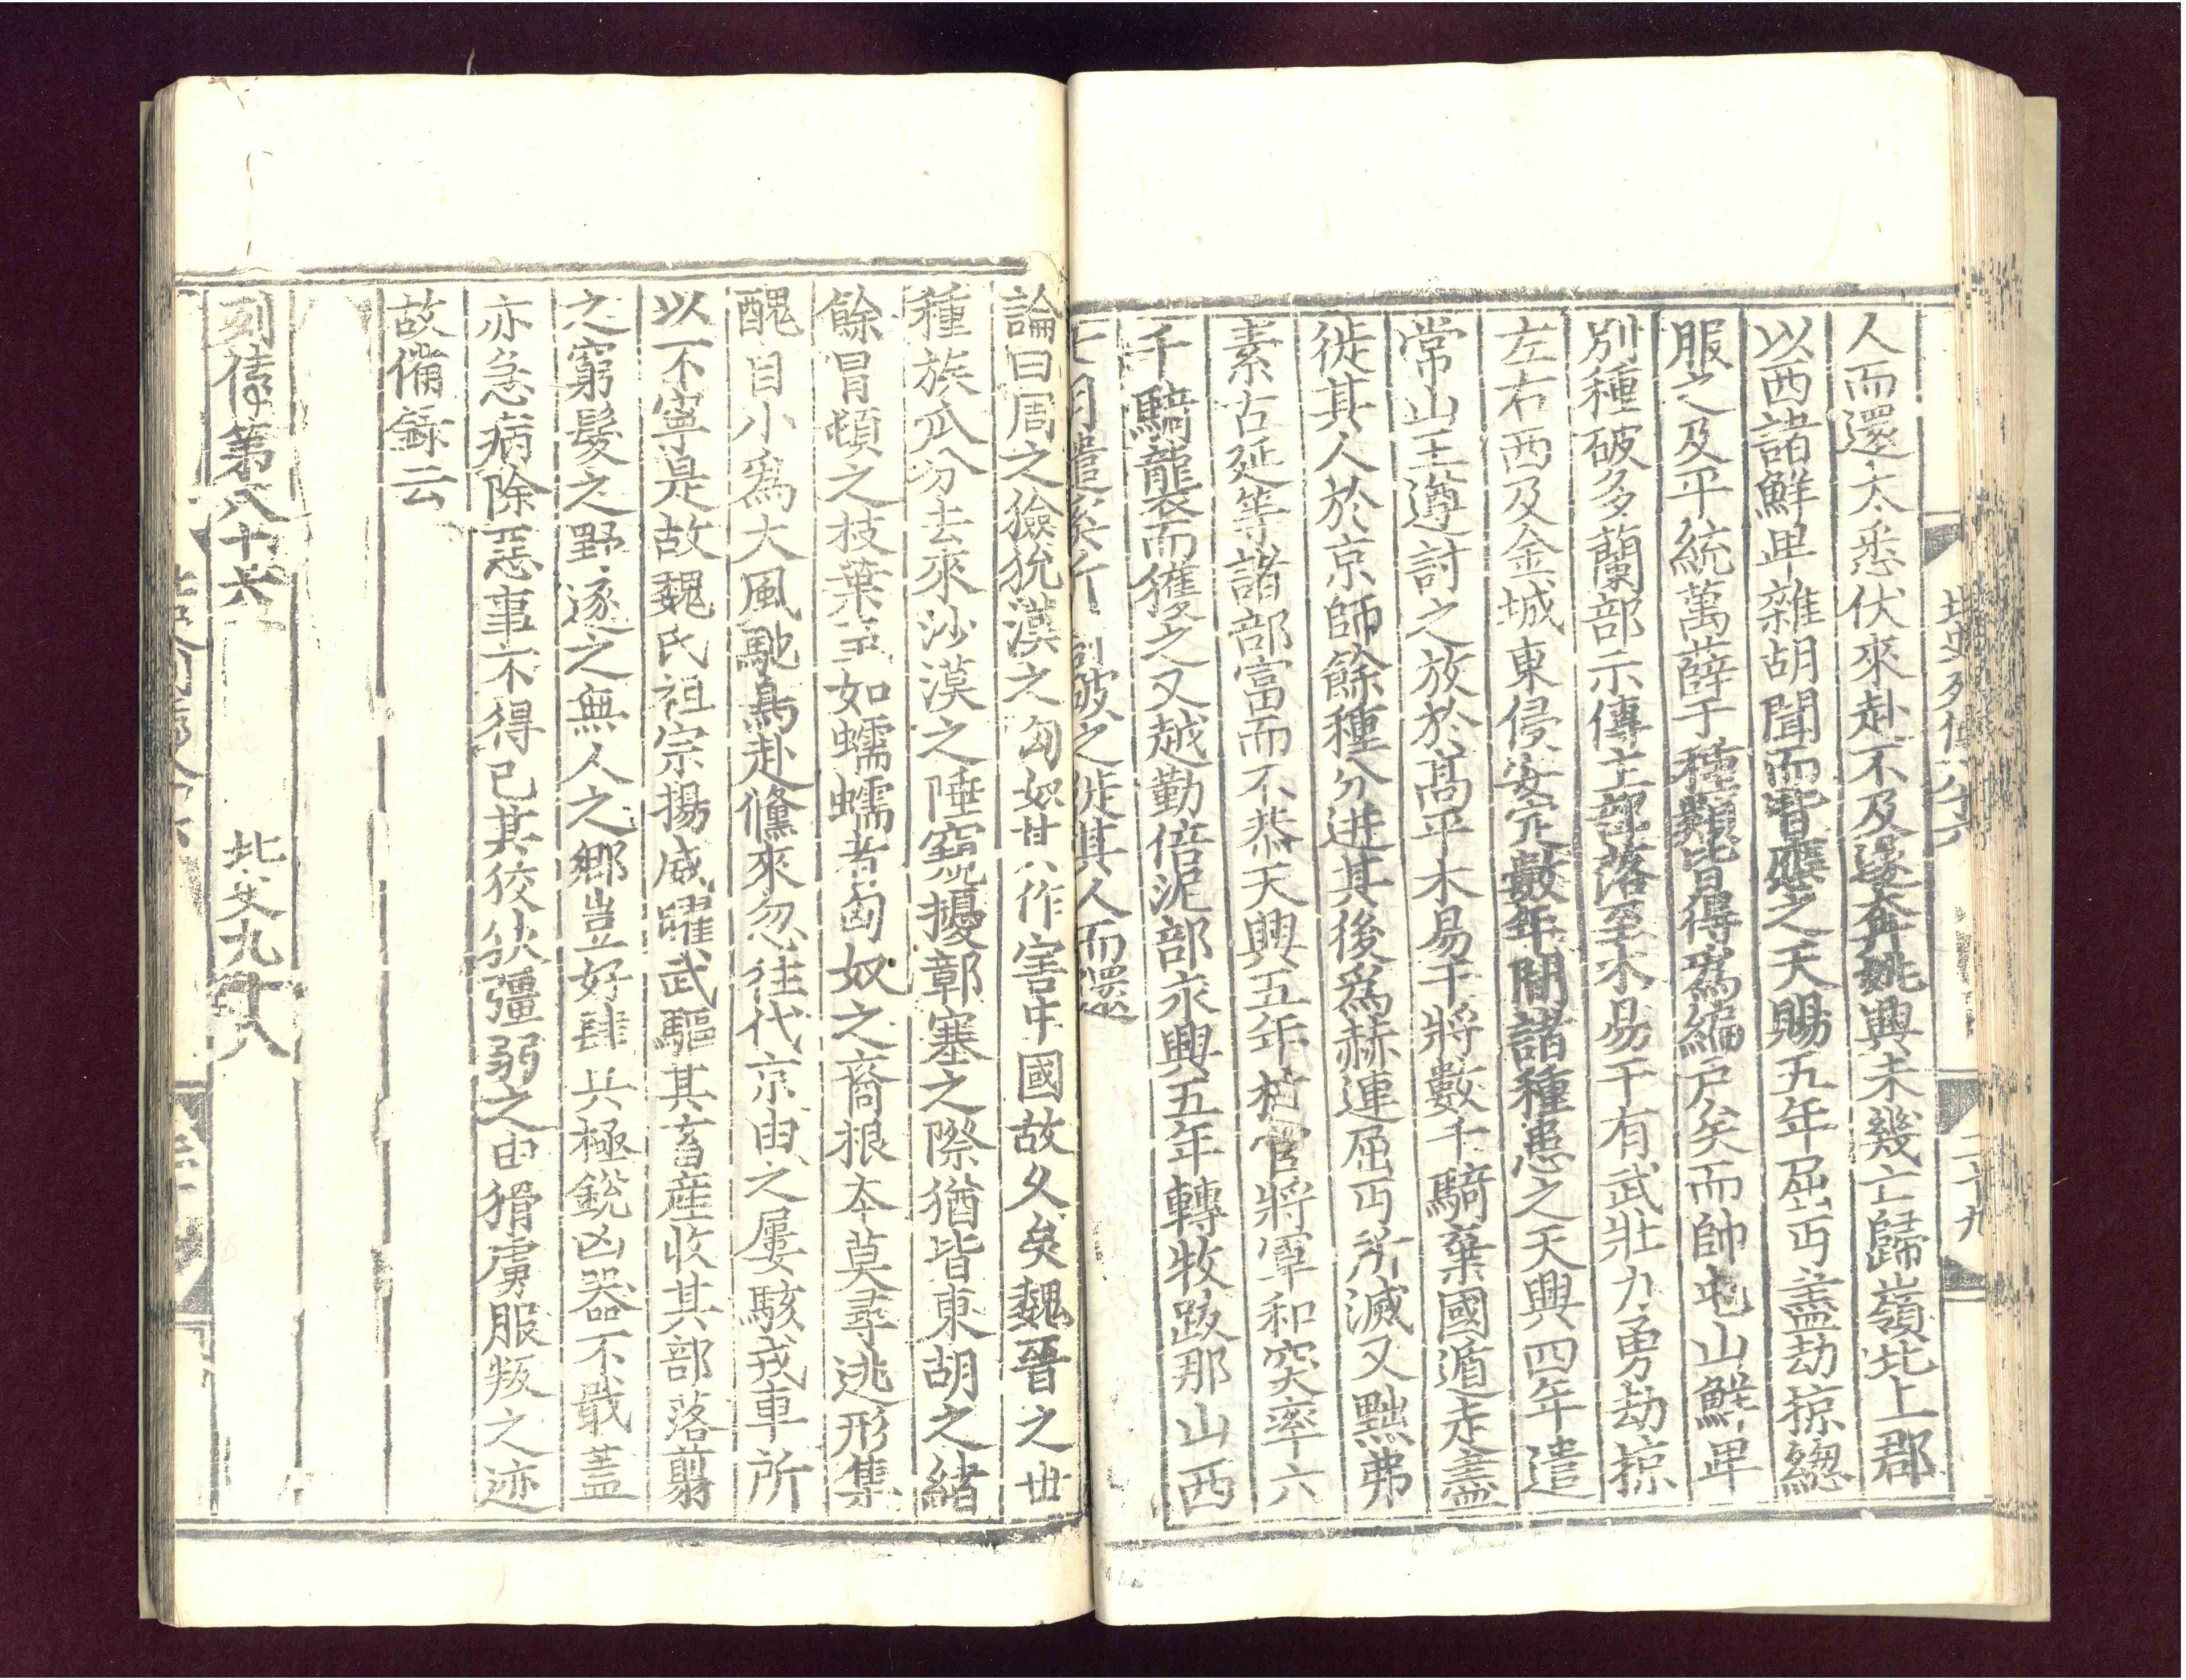 北史列傳八十六
二十九
人而還太悉伏來赴不及遂奔姚興未幾亡歸嶺北上郡
以西諸鮮卑雜胡聞而皆應之天賜五年屈丐盡劫掠緫
服之及平統萬薛干種類皆得爲編戶矣而帥屯山鮮卑
別種破多蘭部示傳主部落至木易干有武壯力勇劫掠
左右西及金城東侵安定數年間諸種患之天興四年遣
常山王遵討之放於高平木易干將數千騎棄國遁走盡
徙其人於京師餘種分迸其後爲赫連屈丐所滅又黜弗
素古延等諸部富而不恭天興五年材官將軍和突率六
千騎襲而獲之又越勤倍泥部永興五年轉牧跋那山西
七月遣奚斤 破之徙其人而還
論曰周之獫狁漢之匈奴其作害中國故久矣魏晉之世
種族瓜分去來沙漠之陲窺擾鄣塞之際猶皆東胡之緒
餘冒頓之枝葉至如蠕蠕者匈奴之裔根本莫尋逃形集
醜自小爲大風馳鳥赴儵來忽往代京由之屢駭戎車所
以不寧是故魏氏祖宗揚威曜武驅其畜產收其部落翦
之窮髮之野逐之無人之鄉豈好肆兵極銳凶器不戢蓋
亦急病除惡事不得已其狡狄彊弱之由猾虜服叛之迹
故備錄云
列傳第八十六 北史九十八